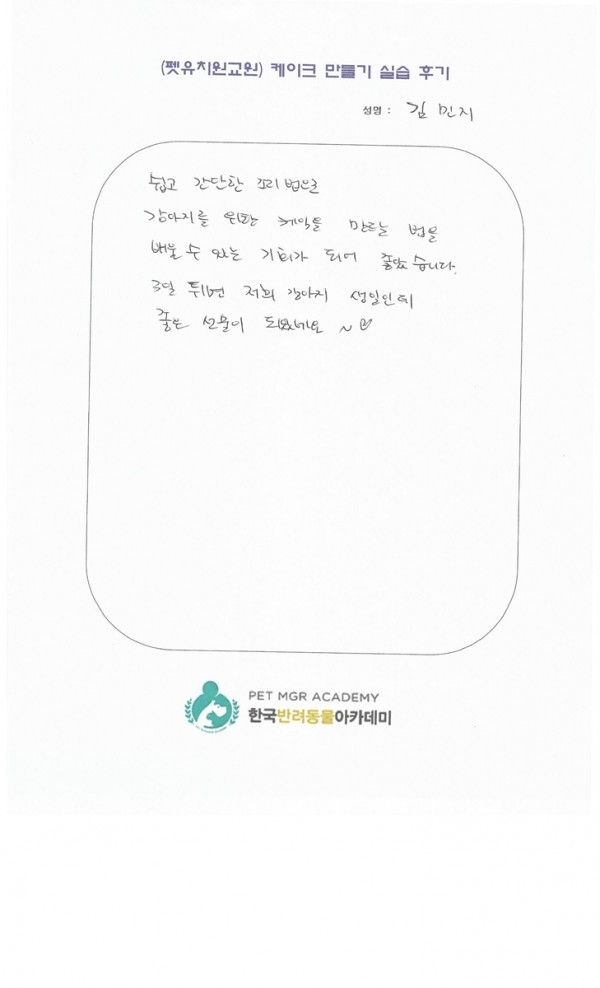 (펫유치원교원) 케이크 만들기 실습 후기
성명 : 김 민지
쉽고 간단한 조리법으로
강아지를 위한 케익을 만드는 법을
배울 수 있는 기회가 되어 좋았습니다.
3일 뒤면 저희 강아지 생일인데
좋은 선물이 되겠네요 ~♡
PET MGR ACADEMY
한국반려동물아카데미